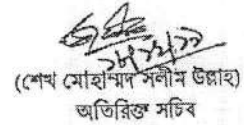 (শেখ মোহাম্মদ সলীম উল্লাহ)
অতিরিক্ত সচিব